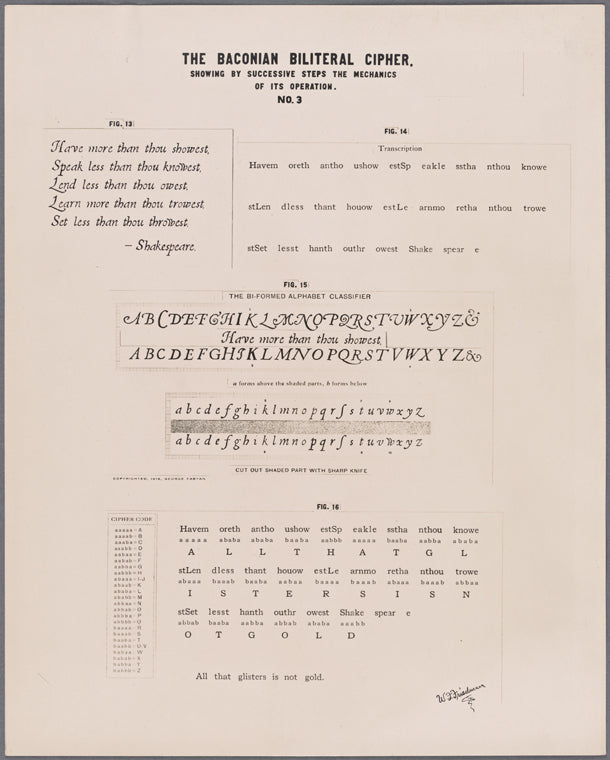 THE BACONIAN BILITERAL CIPHER,
SHOWING BY SUCCESSIVE STEPS THE MECHANICS
OF ITS OPERATION.
NO. 3
FIG. 13
Have more than thou showest,
Speak less than thou knowest,
Lend less than thou owest,
Learn more than thou trowest,
Set less than thou throwest.
– Shakespeare.
FIG. 14
Transcription
Havem oreth antho ushow estSp eakle sstha nthou knowe
stLen dless thant houow estLe arnmo retha nthou trowe
stSet lesst hanth outhr owest Shake spear e
FIG. 15
THE BI-FORMED ALPHABET CLASSIFIER
A B C D E F G H I K L M N O P Q R S T U W X Y Z &
Have more than thou showest,
A B C D E F G H I K L M N O P Q R S T V W X Y Z &
a forms above the shaded parts, b forms below
a b c d e f g h i k l m n o p q r ſ s t u v w x y z
a b c d e f g h i k l m n o p q r ſ s t u v w x y z
CUT OUT SHADED PART WITH SHARP KNIFE
COPYRIGHTED, 1916, GEORGE FABYAN
FIG. 16
CIPHER CODE
aaaaa = A
aaaab = B
aaaba = C
aaabb = D
aabaa = E
aabab = F
aabba = G
aabbb = H
abaaa = I-J
abaab = K
ababa = L
ababb = M
abbaa = N
abbab = O
abbba = P
abbbb = Q
baaaa = R
baaab = S
baaba = T
baabb = U-V
babaa = W
babab = X
babba = Y
babbb = Z
Havem oreth antho ushow estSp eakle sstha nthou knowe
aaaaa ababa ababa baaba aabbb aaaaa baaba aabba ababa
A L L T H A T G L
stLen dless thant houow estLe arnmo retha nthou trowe
abaaa baaab baaba aabaa baaaa baaab abaaa baaab abbaa
I S T E R S I S N
stSet lesst hanth outhr owest Shake spear e
abbab baaba aabba abbab ababa aaabb
O T G O L D
All that glisters is not gold.
W F Friedman